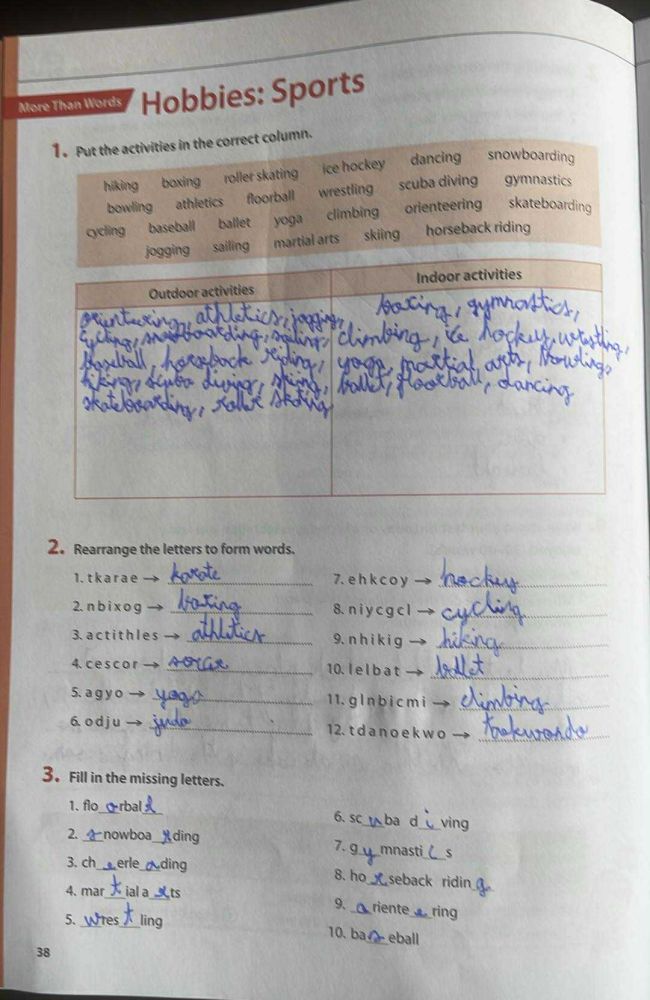 More Than Words
Hobbies: Sports
1. Put the activities in the correct column.
hiking boxing roller skating ice hockey dancing snowboarding
bowling athletics floorball wrestling scuba diving gymnastics
cycling baseball ballet yoga climbing orienteering skateboarding
jogging sailing martial arts skiing horseback riding
Outdoor activities
orienteering, athletics, jogging,
cycling, snowboarding, sailing,
baseball, horseback riding,
hiking, scuba diving, skiing,
skateboarding, roller skating
Indoor activities
boxing, gymnastics,
climbing, ice hockey, wrestling,
yoga, martial arts, bowling,
ballet, floorball, dancing
2. Rearrange the letters to form words.
1. t k a r a e → karate
2. n b i x o g → boxing
3. a c t i t h l e s → athletics
4. c e s c o r →
5. a g y o → yoga
6. o d j u → judo
7. e h k c o y → hockey
8. n i y c g c l → cycling
9. n h i k i g → hiking
10. l e l b a t → ballet
11. g l n b i c m i → climbing
12. t d a n o e k w o → taekwondo
3. Fill in the missing letters.
1. flo o rbal l
2. s nowboa r ding
3. ch e erle a ding
4. mar t ial a r ts
5. w res t ling
6. sc u ba d i ving
7. g y mnasti c s
8. ho r seback ridin g
9. o riente e ring
10. ba s eball
38